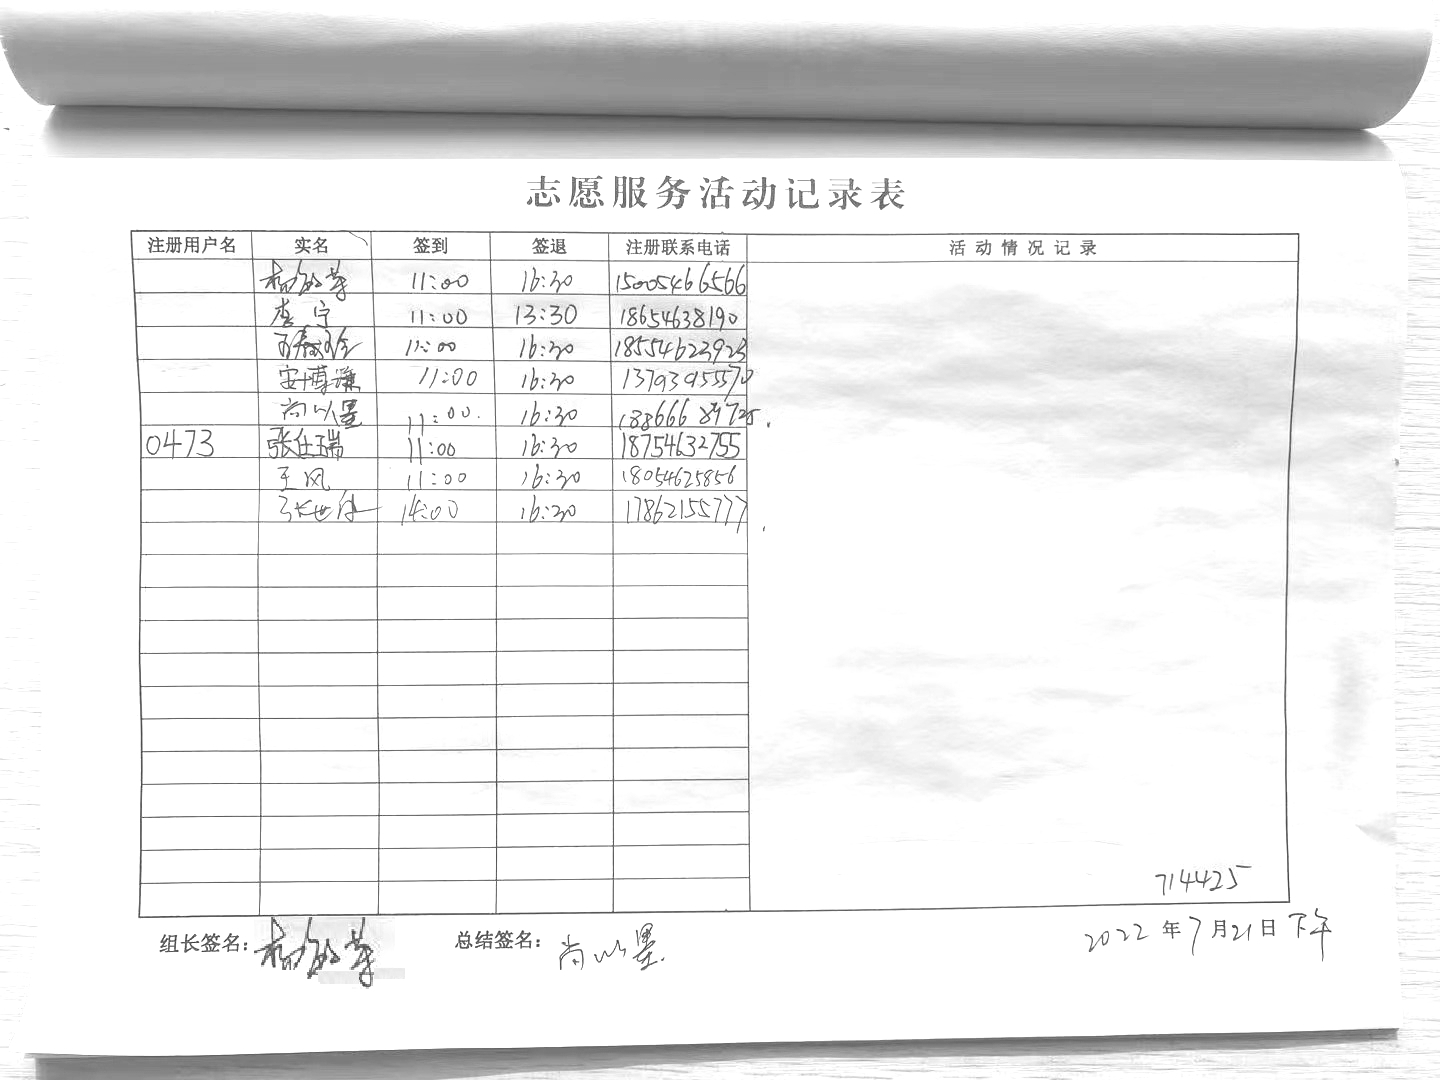 志愿服务活动记录表
注册用户名 实名 签到 签退 注册联系电话 活动情况记录
11:00 16:30 15005466566
李宁 11:00 13:30 18654638190
11:00 16:30 18554623923
安博谦 11:00 16:30 13793955570
尚以墨 11:00. 16:30 18866689725.
0473 张仕瑞 11:00 16:30 18754632755
王风 11:00 16:30 18054625856
张世 14:00 16:30 17862155777.
714425
组长签名: 总结签名: 尚以墨.
2022年7月21日下午